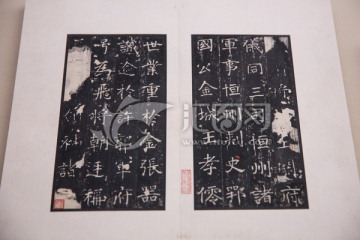 府
儀同三司恒州諸
軍事恒州刺史鄂
國公金城王孝僊
世業重於金張器
識逾於許郭軍府
号爲飛將朝廷稱